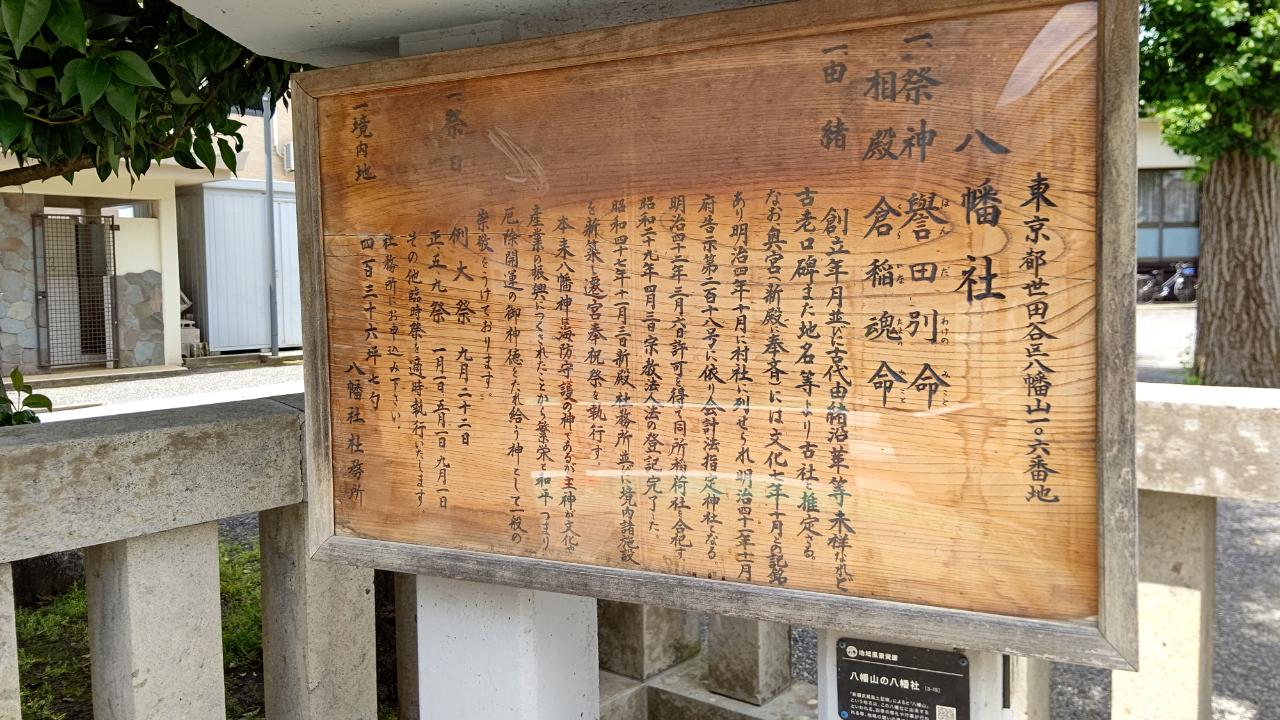 東京都世田谷区八幡山一ノ六番地
八幡社
一、祭神 譽田別命
ほんだわけのみこと
相殿 倉稲魂命
うかなたまのみこと
一由緒
創立年月並に古代由緒沿革等未祥なれど
古老口碑また地名等より古社と推定さる。
なお奥宮(新殿に奉斉)には文化七年十月との記銘
あり明治四年十月に村社に列せられ明治四十一年十一月
府告示第二百十八号に依り会計法指定神社になる。
明治四十二年三月六日許可を得て同所稲荷社を合祀す
昭和二十九年四月三日宗教法人法の登記完了した。
昭和四十七年十二月三日新殿、社務所並に境内諸施設
を新築し遷宮奉祝祭を執行す。
本来八幡神は海防守護の神であるが主神が文化や
産業の振興につくされたことから繁栄と和平つまり
厄除開運の御神徳をたれ給う神として一般の
崇敬をうけております。
一祭日
例大祭 九月二十二日
正五九祭 一月一日 五月一日 九月一日
その他臨時祭も適時執行いたします。
社務所にお申込み下さい。
一境内地
四百三十六坪七勺
八幡社 社務所
地域風景資産
八幡山の八幡社 [3-15]